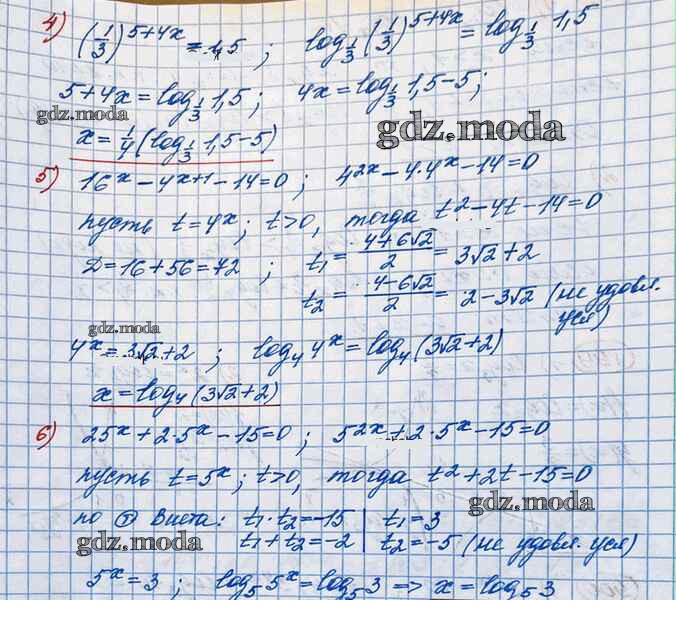 4) (1/3)^(5+4x) = 1,5 ; log_(1/3) (1/3)^(5+4x) = log_(1/3) 1,5
5+4x = log_(1/3) 1,5 ; 4x = log_(1/3) 1,5 - 5;
gdz.moda
gdz.moda
x = 1/4 (log_(1/3) 1,5 - 5)
5) 16^x - 4^(x+1) - 14 = 0 ; 4^(2x) - 4·4^x - 14 = 0
пусть t = 4^x ; t > 0, тогда t² - 4t - 14 = 0
D = 16 + 56 = 72 ; t₁ = (4+6√2)/2 = 3√2 + 2
t₂ = (4-6√2)/2 = 2 - 3√2 (не удовл. усл)
gdz.moda
4^x = 3√2 + 2 ; log₄ 4^x = log₄ (3√2 + 2)
x = log₄ (3√2 + 2)
6) 25^x + 2·5^x - 15 = 0 ; 5^(2x) + 2·5^x - 15 = 0
пусть t = 5^x ; t > 0, тогда t² + 2t - 15 = 0
gdz.moda
по Ⓣ Виета: t₁·t₂ = -15 | t₁ = 3
gdz.moda
t₁ + t₂ = -2 | t₂ = -5 (не удовл. усл)
5^x = 3 ; log₅ 5^x = log₅ 3 => x = log₅ 3